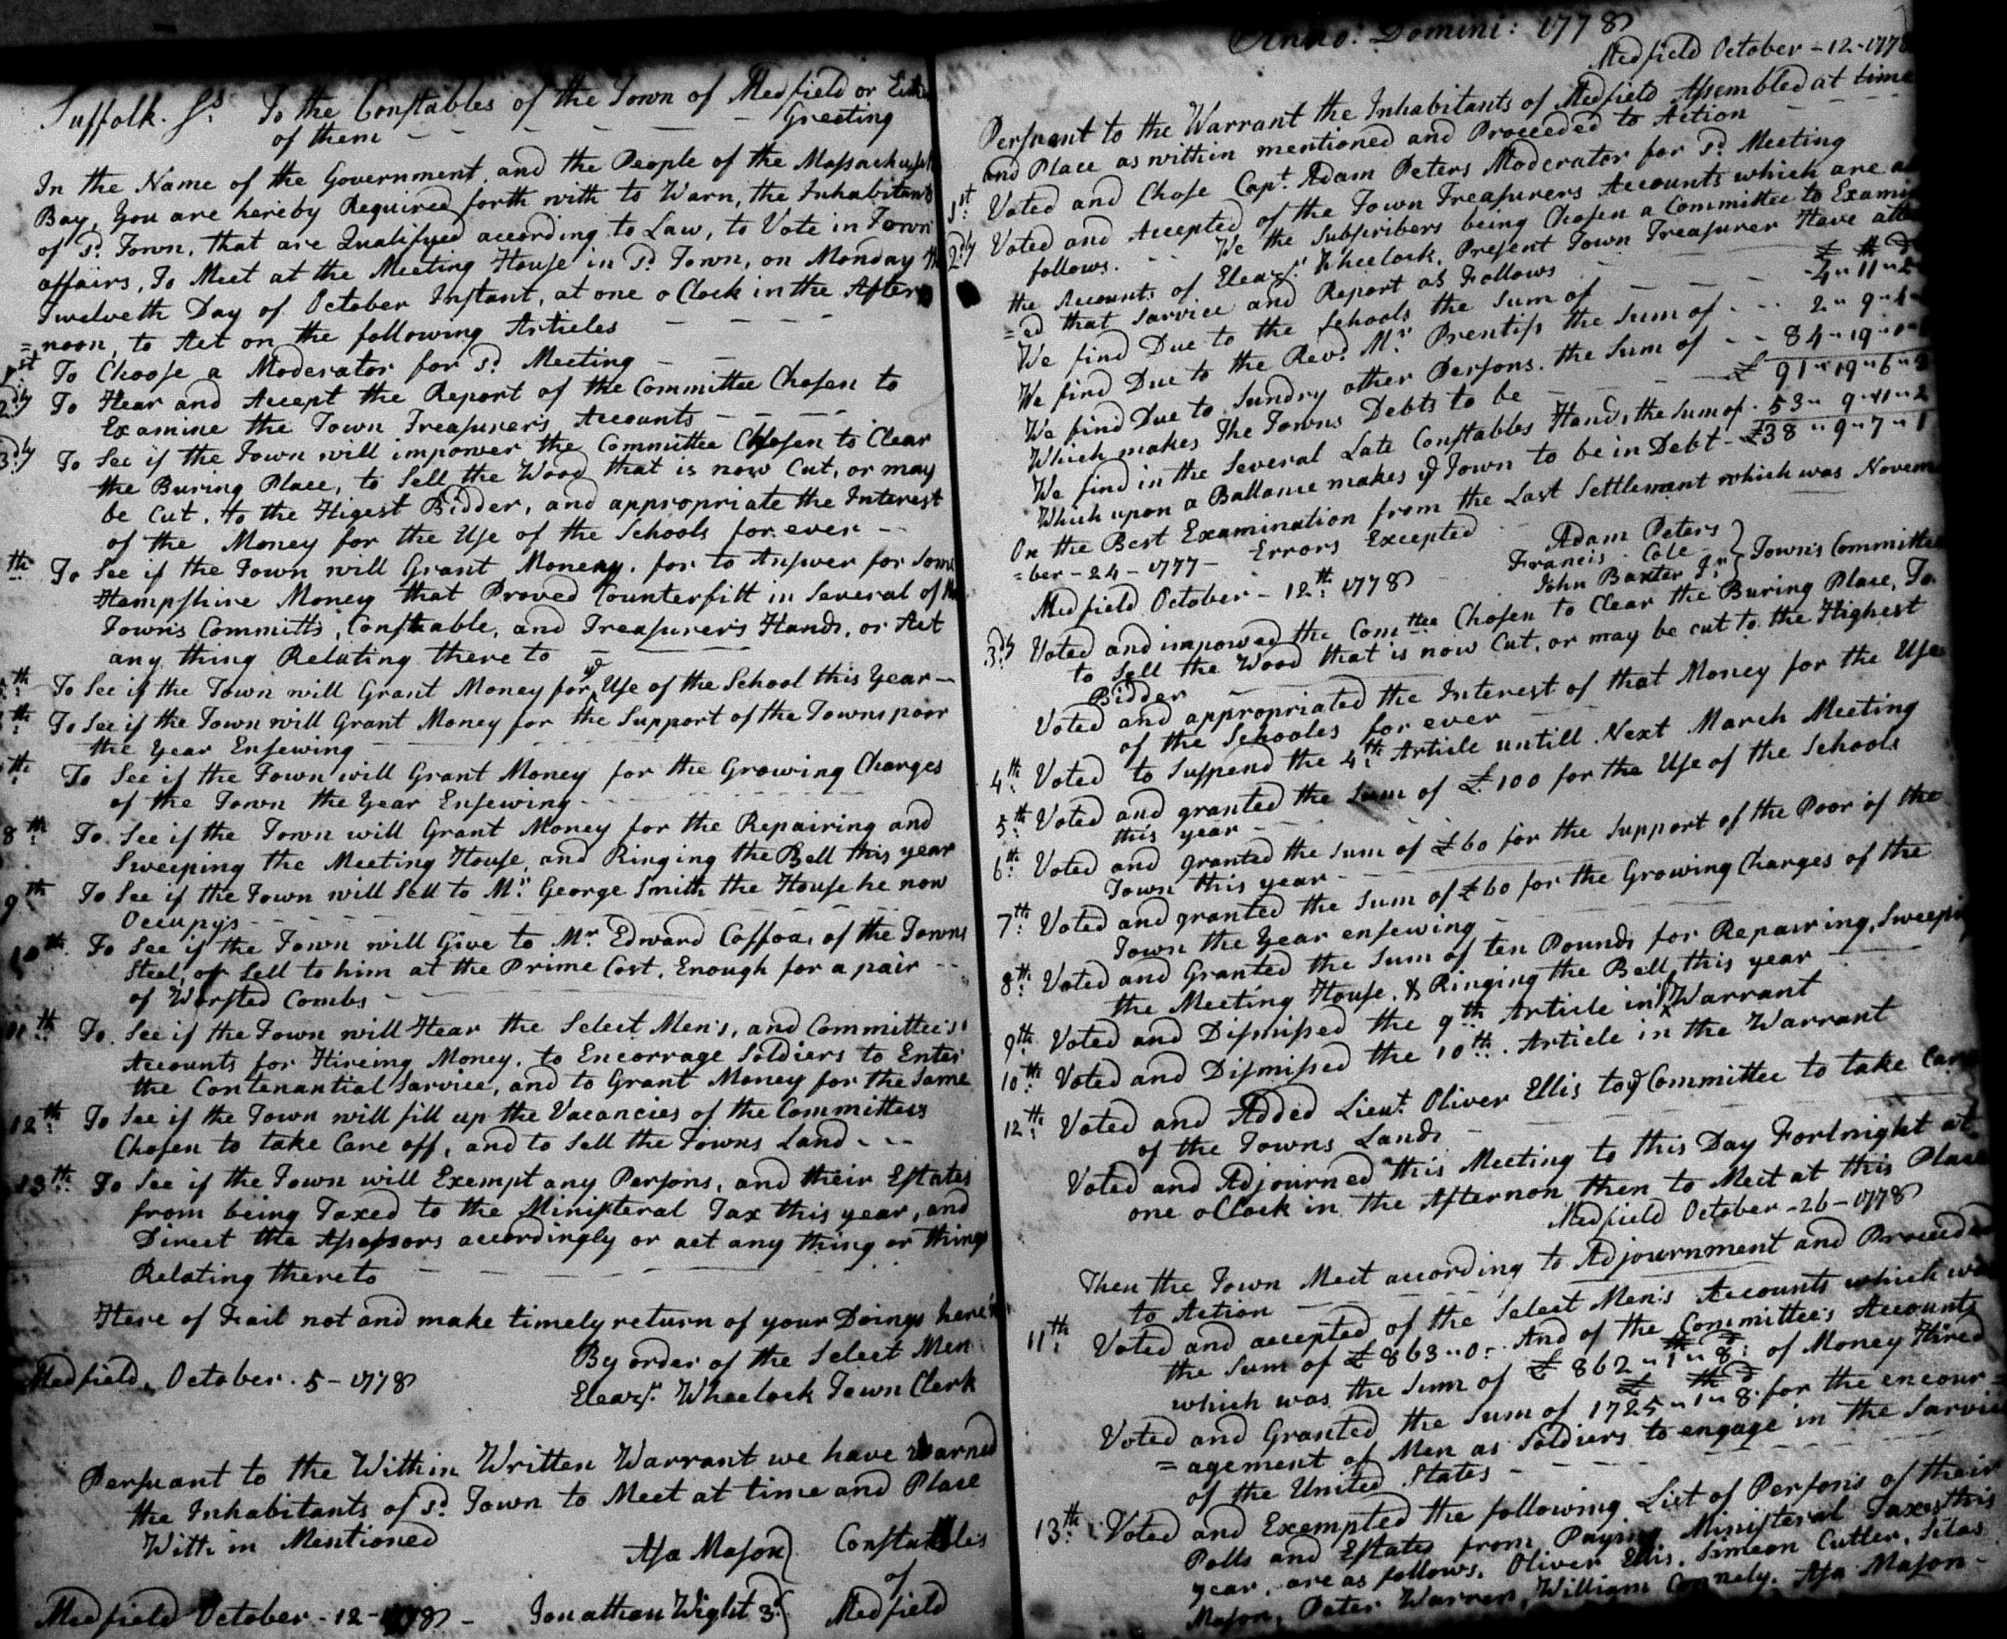 Suffolk. Ss. To the Constables of the Town of Medfield or Either
of them - - - - - Greeting
In the Name of the Government, and the People of the Massachusetts
Bay, You are hereby Required forth with to Warn, the Inhabitants
of Sd. Town, that are Qualifyed according to Law, to Vote in Town
affairs, To Meet at the Meeting House in Sd. Town, on Monday the
Twelveth Day of October Instant, at one o Clock in the After
=noon, to Act on the following Articles - - - -
1st To Choose a Moderator for Sd. Meeting - -
2dly To Hear and Accept the Report of the Committee Chosen to
Examine the Town Treasurer's Accounts - - - -
3dly To See if the Town will impower the Committee Chosen to Clear
the Buring Place, to Sell the Wood that is now Cut, or may
be Cut, to the Higest Bidder, and appropriate the Interest
of the Money for the Use of the Schools for ever -
th To See if the Town will Grant Money, for to Answer for Some
Hampshire Money that Proved Counterfitt in Several of the
Town's Committs, Constable, and Treasurer's Hands, or Act
any thing Relating there to -
th To See if the Town will Grant Money for ye Use of the School this Year -
th To See if the Town will Grant Money for the Support of the Towns poor
the Year Ensewing - - -
th To See if the Town will Grant Money for the Growing Charges
of the Town the Year Ensewing - - -
8th To See if the Town will Grant Money for the Repairing and
Sweeping the Meeting House, and Ringing the Bell this year
9th To See if the Town will Sell to Mr. George Smith the House he now
Occupys - - - - -
10th To See if the Town will Give to Mr. Edward of the Towns
Steel, or Sell to him at the Prime Cost, Enough for a pair - -
of Worsted Combs - - -
11th To See if the Town will Hear the Select Men's, and Committee's
Accounts for Hireing Money, to Encorrage Soldiers to Enter
the Contenantial Sarvice, and to Grant Money for the Same
12th To See if the Town will fill up the Vacancies of the Committees
Chosen to take Care off, and to Sell the Towns Land - - -
13th To See if the Town will Exempt any Persons, and their Estates
from being Taxed to the Ministeral Tax this year, and
Direct the Assessors accordingly or act any thing or things
Relating thereto - - -
Here of Fail not and make timely return of your Doings herein
By order of the Select Men
Medfield, October. 5 - 1778 Eleazr. Wheelock Town Clerk
Persuant to the Within Written Warrant we have warned
the Inhabitants of Sd. Town to Meet at time and Place
With in Mentioned
Asa Mason } Constables
of
Medfield October - 12 - 1778 - Jonathan Wight 3d } Medfield
Anno: Domini: 1778
Medfield October - 12 - 1778
Persuant to the Warrant the Inhabitants of Medfield Assembled at time
and Place as within mentioned and Proceeded to Action - - -
1st Voted and Chose Capt. Adam Peters Moderator for Sd. Meeting
2dly Voted and Accepted of the Town Treasurers Accounts which are as
follows. - - We the Subscribers being Chosen a Committee to Examine
the Accounts of Eleazr. Wheelock, Present Town Treasurer Have attend
=ed that Sarvice and Report as Follows -
We find Due to the Schools the Sum of - - - 4 " 11 " 2
We find Due to the Revd. Mr. Prentiss the Sum of - - 2 " 9 " 4
We find Due to Sundry other Persons. the Sum of - - 84 " 19 " 0
Which makes The Towns Debts to be - - - £ 91 " 19 " 6 " 3
We find in the Several Late Constables Hands, the Sum of. 53 " 9 " 11 " 2
Which upon a Ballance makes ye Town to be in Debt - £38 " 9 " 7 " 1
On the Best Examination from the Last Settlement which was Novem
=ber - 24 - 1777 - Errors Excepted
Adam Peters
Francis Cole
John Baxter Jnr } Town's Committee
Medfield October - 12th. 1778
3dly Voted and impowed the Comttee Chosen to Clear the Buring Place, To
to Sell the Wood that is now Cut, or may be cut to the Highest
Bidder - - -
Voted and appropriated the Interest of that Money for the Use
of the Schooles for ever - -
4th Voted to Suspend the 4th. Article untill Next March Meeting
5th Voted and granted the Sum of £100 for the Use of the Schools
this year - - -
6th Voted and granted the Sum of £60 for the Support of the Poor of the
Town this year - - -
7th Voted and granted the Sum of £60 for the Growing Charges of the
Town the Year ensewing - - -
8th Voted and Granted the Sum of ten Pounds for Repairing, Sweeping
the Meeting House, & Ringing the Bell this year -
9th Voted and Dismissed the 9th Article in ye Warrant
10th Voted and Dismissed the 10th. Article in the Warrant
12th Voted and Added Lieut. Oliver Ellis to ye Committee to take Care
of the Towns Lands - - -
Voted and Adjourned this Meeting to this Day Fortnight at
one oClock in the Afternon then to Meet at this Place
Medfield October - 26 - 1778
Then the Town Meet according to Adjournment and Proceeded
to Action - - -
11th Voted and accepted of the Select Men's Accounts which was
the Sum of £863 " 0 - And of the Committee's Accounts
which was the Sum of £ 862 " 1 " 8 : of Money Hired
Voted and Granted the Sum of 1725 " 1 " 8 for the encour=
=agement of Men as Soldiers to engage in the Sarvice
of the United States - - -
13th Voted and Exempted the following List of Persons of their
Polls and Estates from Paying Ministeral Taxes this
year, are as follows, Oliver Ellis, Simeon Cutler, Silas
Mason, Peter Warren, William Connely, Asa Mason -